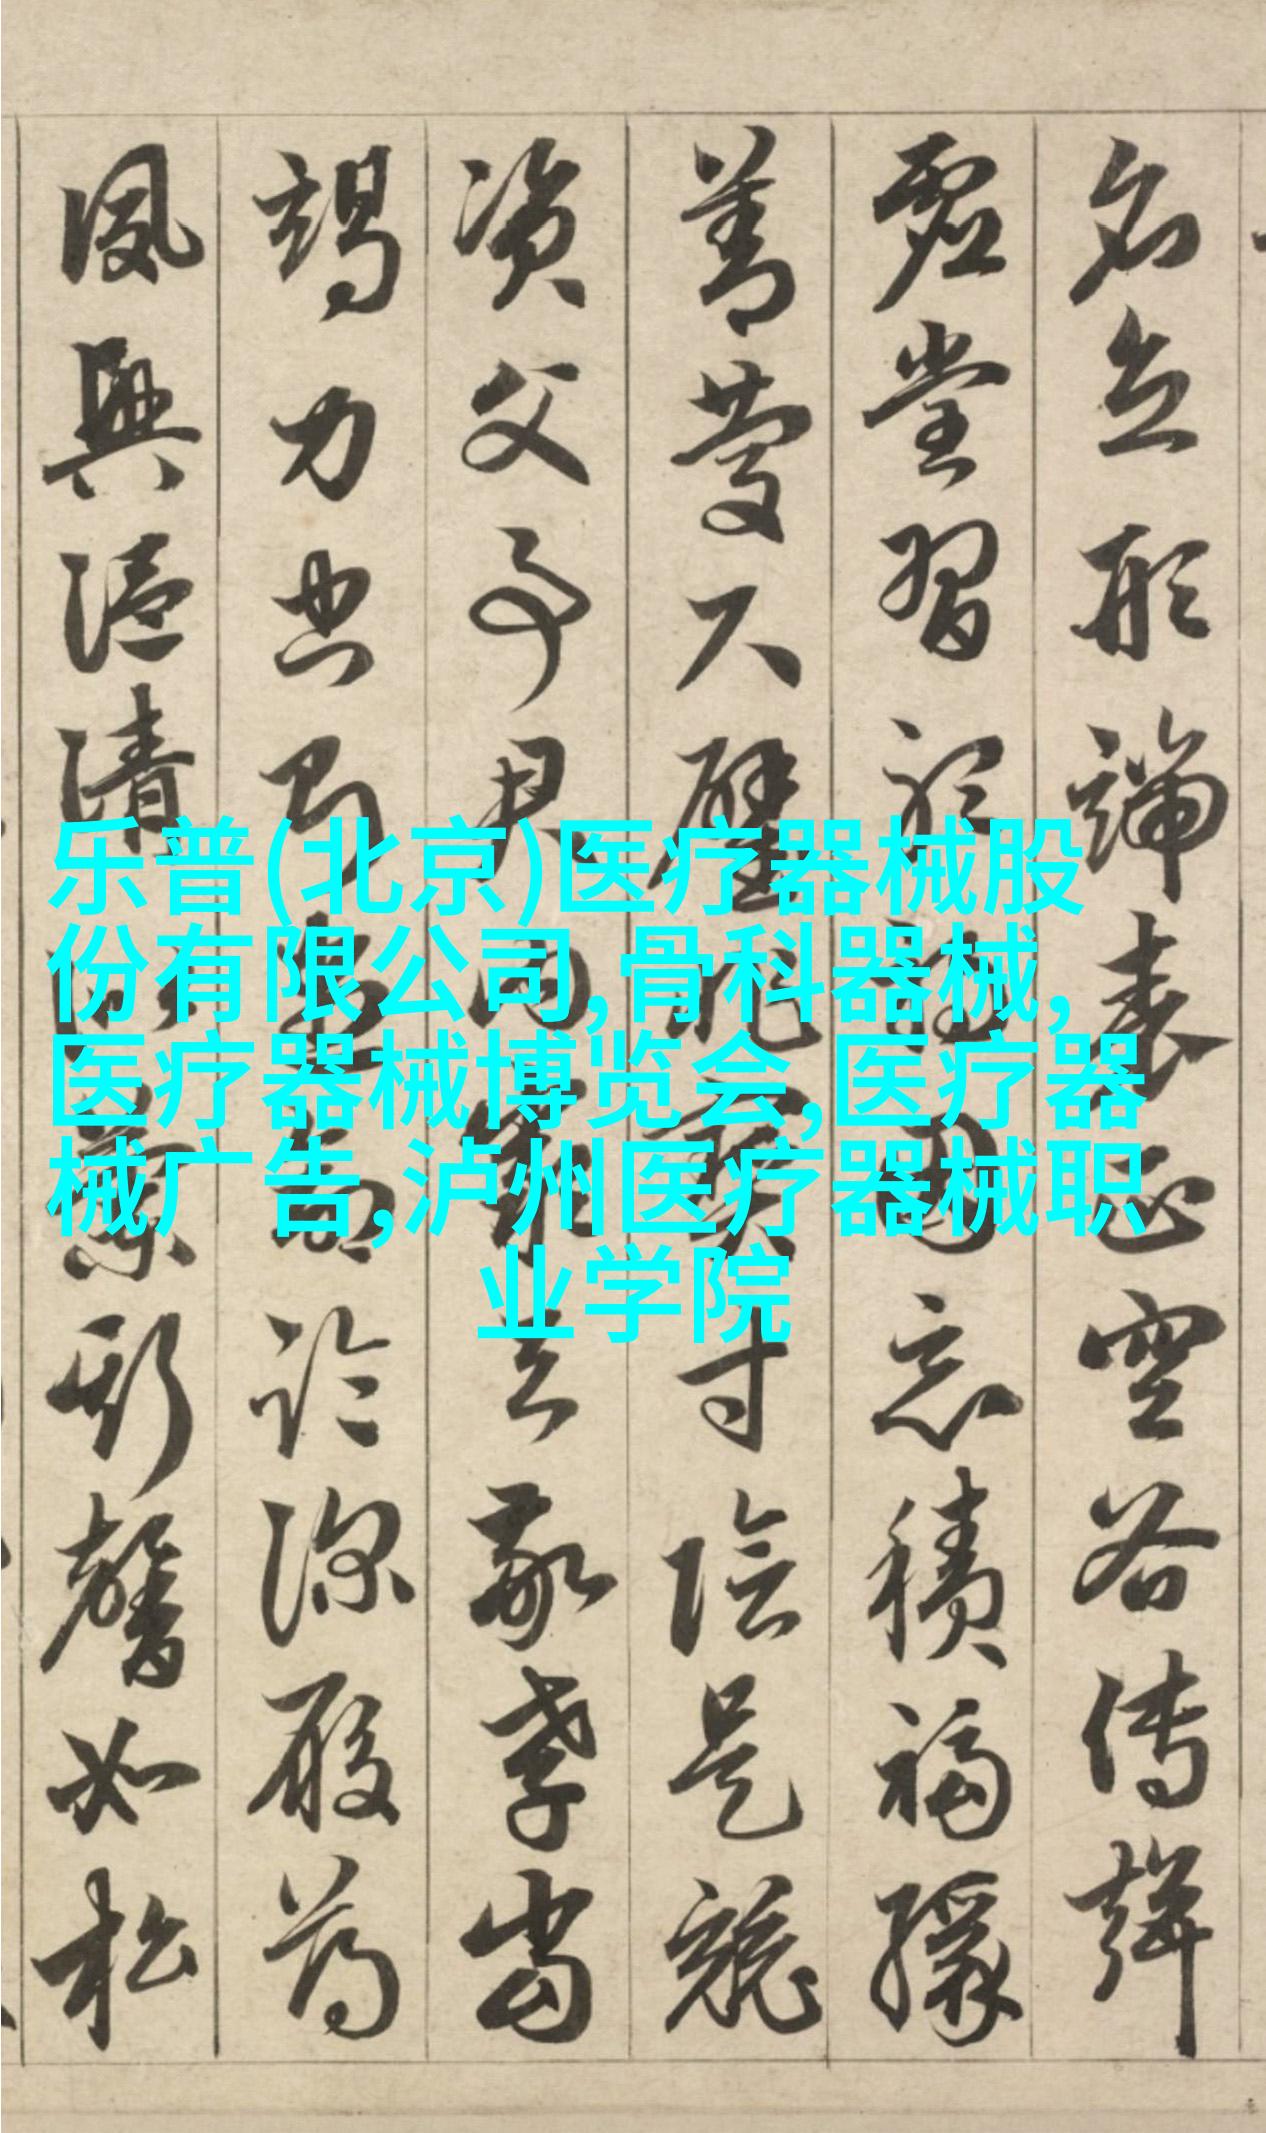 名立形端表正空谷傳聲
虛堂習聽禍因惡積福緣
善慶尺璧非寶寸陰是競
資父事君曰嚴與敬孝當
竭力忠則盡命臨深履薄
夙興溫清似蘭斯馨如松
乐普(北京)医疗器械股
份有限公司,骨科器械,
医疗器械博览会,医疗器
械广告,泸州医疗器械职
业学院